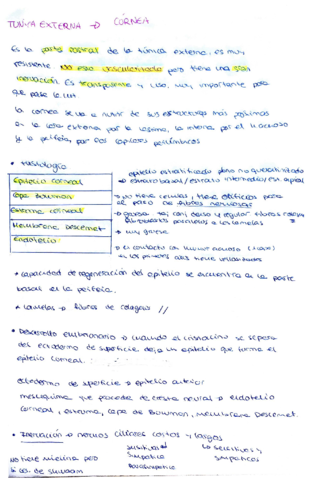 TUNICA EXTERNA → CÓRNEA
Es la parte anterior de la túnica externa, es muy
resistente. No esta vascularizada pero tiene una gran
inervación. Es transparente y lisa, muy importante para
que pase la luz
La cornea se va a nutrir de sus estructuras más próximas
en la cara externa por la lagrima, la interna por el h. acuoso
y la periferia por los capilares perilímbicos
• Histología
Epitelio corneal → epitelio estratificado plano no queratinizado
→ estrato basal/estrato intermedio/est. apical
Capa Bowman → no tiene células, tiene orificios para
el paso de fibras nerviosas
Estroma corneal → gruesa
paralelas a las lamelas
Membrana Descemet → muy gruesa
Endotelio → en contacto con humor acuoso
• capacidad de regeneración del epitelio se encuentra en la parte
basal en la periferia.
• Lamelas → fibras de colageno //
• Desarrollo embrionario → cuando el cristalino se separa
del ectodermo de superficie deja un epitelio que forma el
epitelio corneal.
ectodermo de superficie → epitelio anterior
mesenquima que procede de cresta neural → endotelio
corneal, estroma, capa de Bowman, Membrana Descemet.
• Inervación → nervios ciliares cortos y largos
sensitivos simpatico parasimpatico
→ sensitivos y simpaticos
No tiene mielina pero
si cel. de shwann